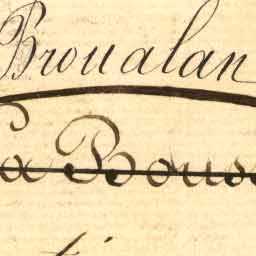 Broualan
La Bous